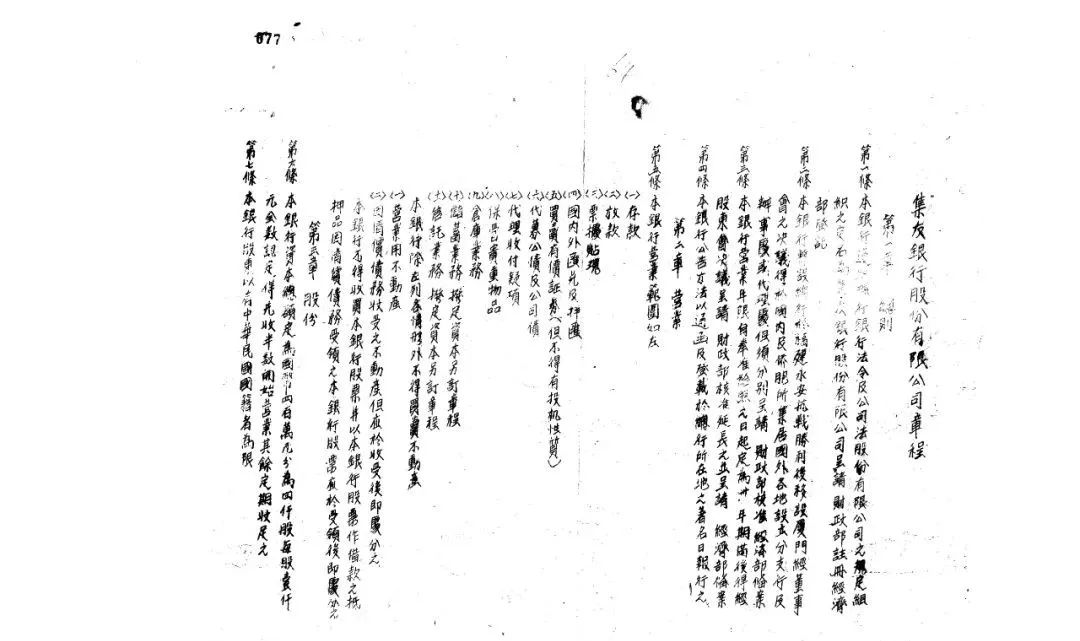 077
集友銀行股份有限公司章程
第一章 總則
第一條 本銀行遵照銀行法令及公司法股份有限公司之規定組
織之定名為集友銀行股份有限公司呈請 財政部註冊經濟
部登記
第二條 本銀行總行設福建永安抗戰勝利後移設廈門經董事
會之決議得於國內及僑胞所集居國外各地設立分支行及
辦事處或代理處但須分別呈請 財政部核准 經濟部備案
第三條 本銀行營業年限自奉准之日起定為卅年期滿後得經
股東會決議呈請 財政部核准延長之並呈請 經濟部備案
第四條 本銀行公告方法以通函及登載於總行所在地之著名日報行之
第二章 營業
第五條 本銀行營業範圍如左
(一)存款
(二)放款
(三)票據貼現
(四)國內外匯兌及押匯
(五)買賣有價証券(但不得有投机性質)
(六)代募公債及公司債
(七)代理收付款項
(八)保管貴重物品
(九)倉庫業務
(十)儲蓄業務 撥定資本另訂章程
(十一)信託業務 撥定資本另訂章程
本銀行除左列各情形外不得買賣不動產
(一)營業用不動產
(二)因清償債務收受之不動產但應於收受後即處分之
本銀行不得收買本銀行股票並以本銀行股票作借款之抵
押品因清償債務受領之本銀行股票應於受領後即處分之
第三章 股份
第六條 本銀行資本總額定為國幣四百萬元分為四仟股每股壹仟
元全數認定得先收半數開始營業其餘定期收足之
第七條 本銀行股東以有中華民國國籍者為限